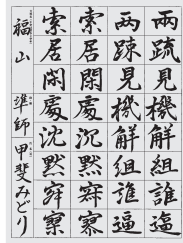 兩疏見機解組誰逼
兩踈見機解組誰逼
索居閑處沉默寂寥
索居閑處沈默寂寥
福山 準師 甲斐みどり